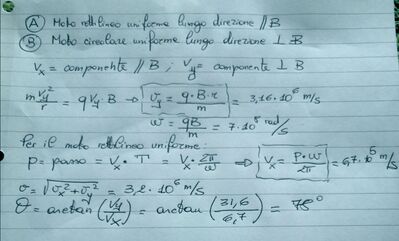 Ⓐ Moto rettilineo uniforme lungo direzione // B
Ⓑ Moto circolare uniforme lungo direzione ⊥ B
Vx = componente // B ; Vy = componente ⊥ B
m Vy²/r = q Vy B ⇒ Vy = q·B·r/m = 3,16·10⁶ m/s
ω = qB/m = 7·10⁸ rad/s
Per il moto rettilineo uniforme:
p = passo = Vx · T = Vx · 2π/ω ⇒ Vx = p·ω/2π = 6,7·10⁵ m/s
v = √(Vx² + Vy²) = 3,2·10⁶ m/s
θ = arctan(Vy/Vx) = arctan(31,6/6,7) = 78°